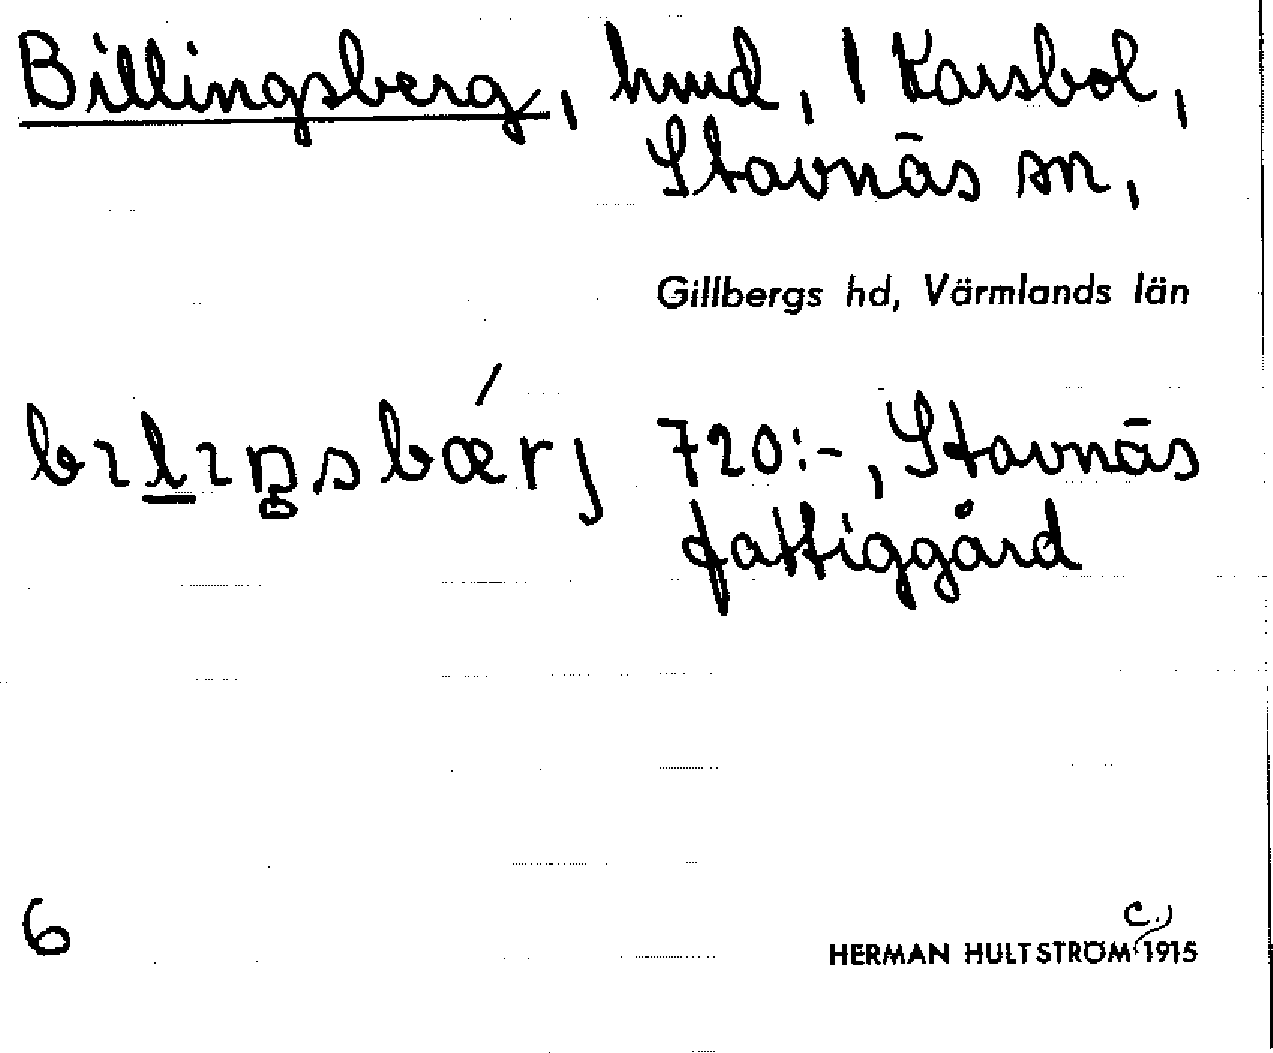 Billingsberg, hmd, 1 Karsbol,
Stavnäs sn,
Gillbergs hd, Värmlands län
bɪlɪŋsbǽrj 720:-, Stavnäs
fattiggård
6
c.
HERMAN HULTSTRÖM 1915